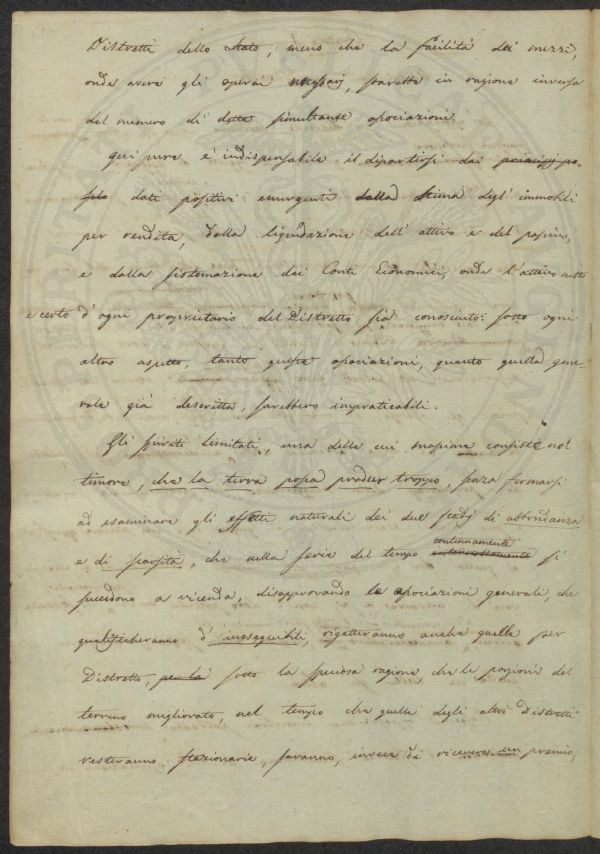 Distretti dello Stato, meno che la facilità dei mezzi,
onde avere gli operai necessarj, sarebbe in ragione inversa
del numero di dette simultanee associazioni.
Qui pure è indispensabile il dipartirsi dai principj po-
sito dati positivi emergenti dalla stima degl' immobili
per vendita, dalla liquidazione dell' attivo e del passivo,
e dalla sistemazione dei Conti Economici, onde l'attivo netto
e certo d'ogni proprietario del Distretto sia conosciuto: sotto ogni
altro aspetto, tanto queste associazioni, quanto quella gene-
rale già descritta, sarebbero impraticabili.
Gli spiriti limitati, una delle cui massime consiste nel
timore, che la terra possa produr troppo, senza fermarsi
ad esaminare gli effetti naturali dei due stadj di abbondanza
e di scarsità, che nella serie del tempo continuamente si
succedono a vicenda, disapprovando le associazioni generali, che
qualificheranno d' ineseguibili, rigetteranno anche quelle per
Distretto, per la sotto la speciosa ragione che le porzioni del
terreno migliorato, nel tempo che quelle degli altri Distretti
resteranno stazionarie, saranno, invece di ricevere un premio,